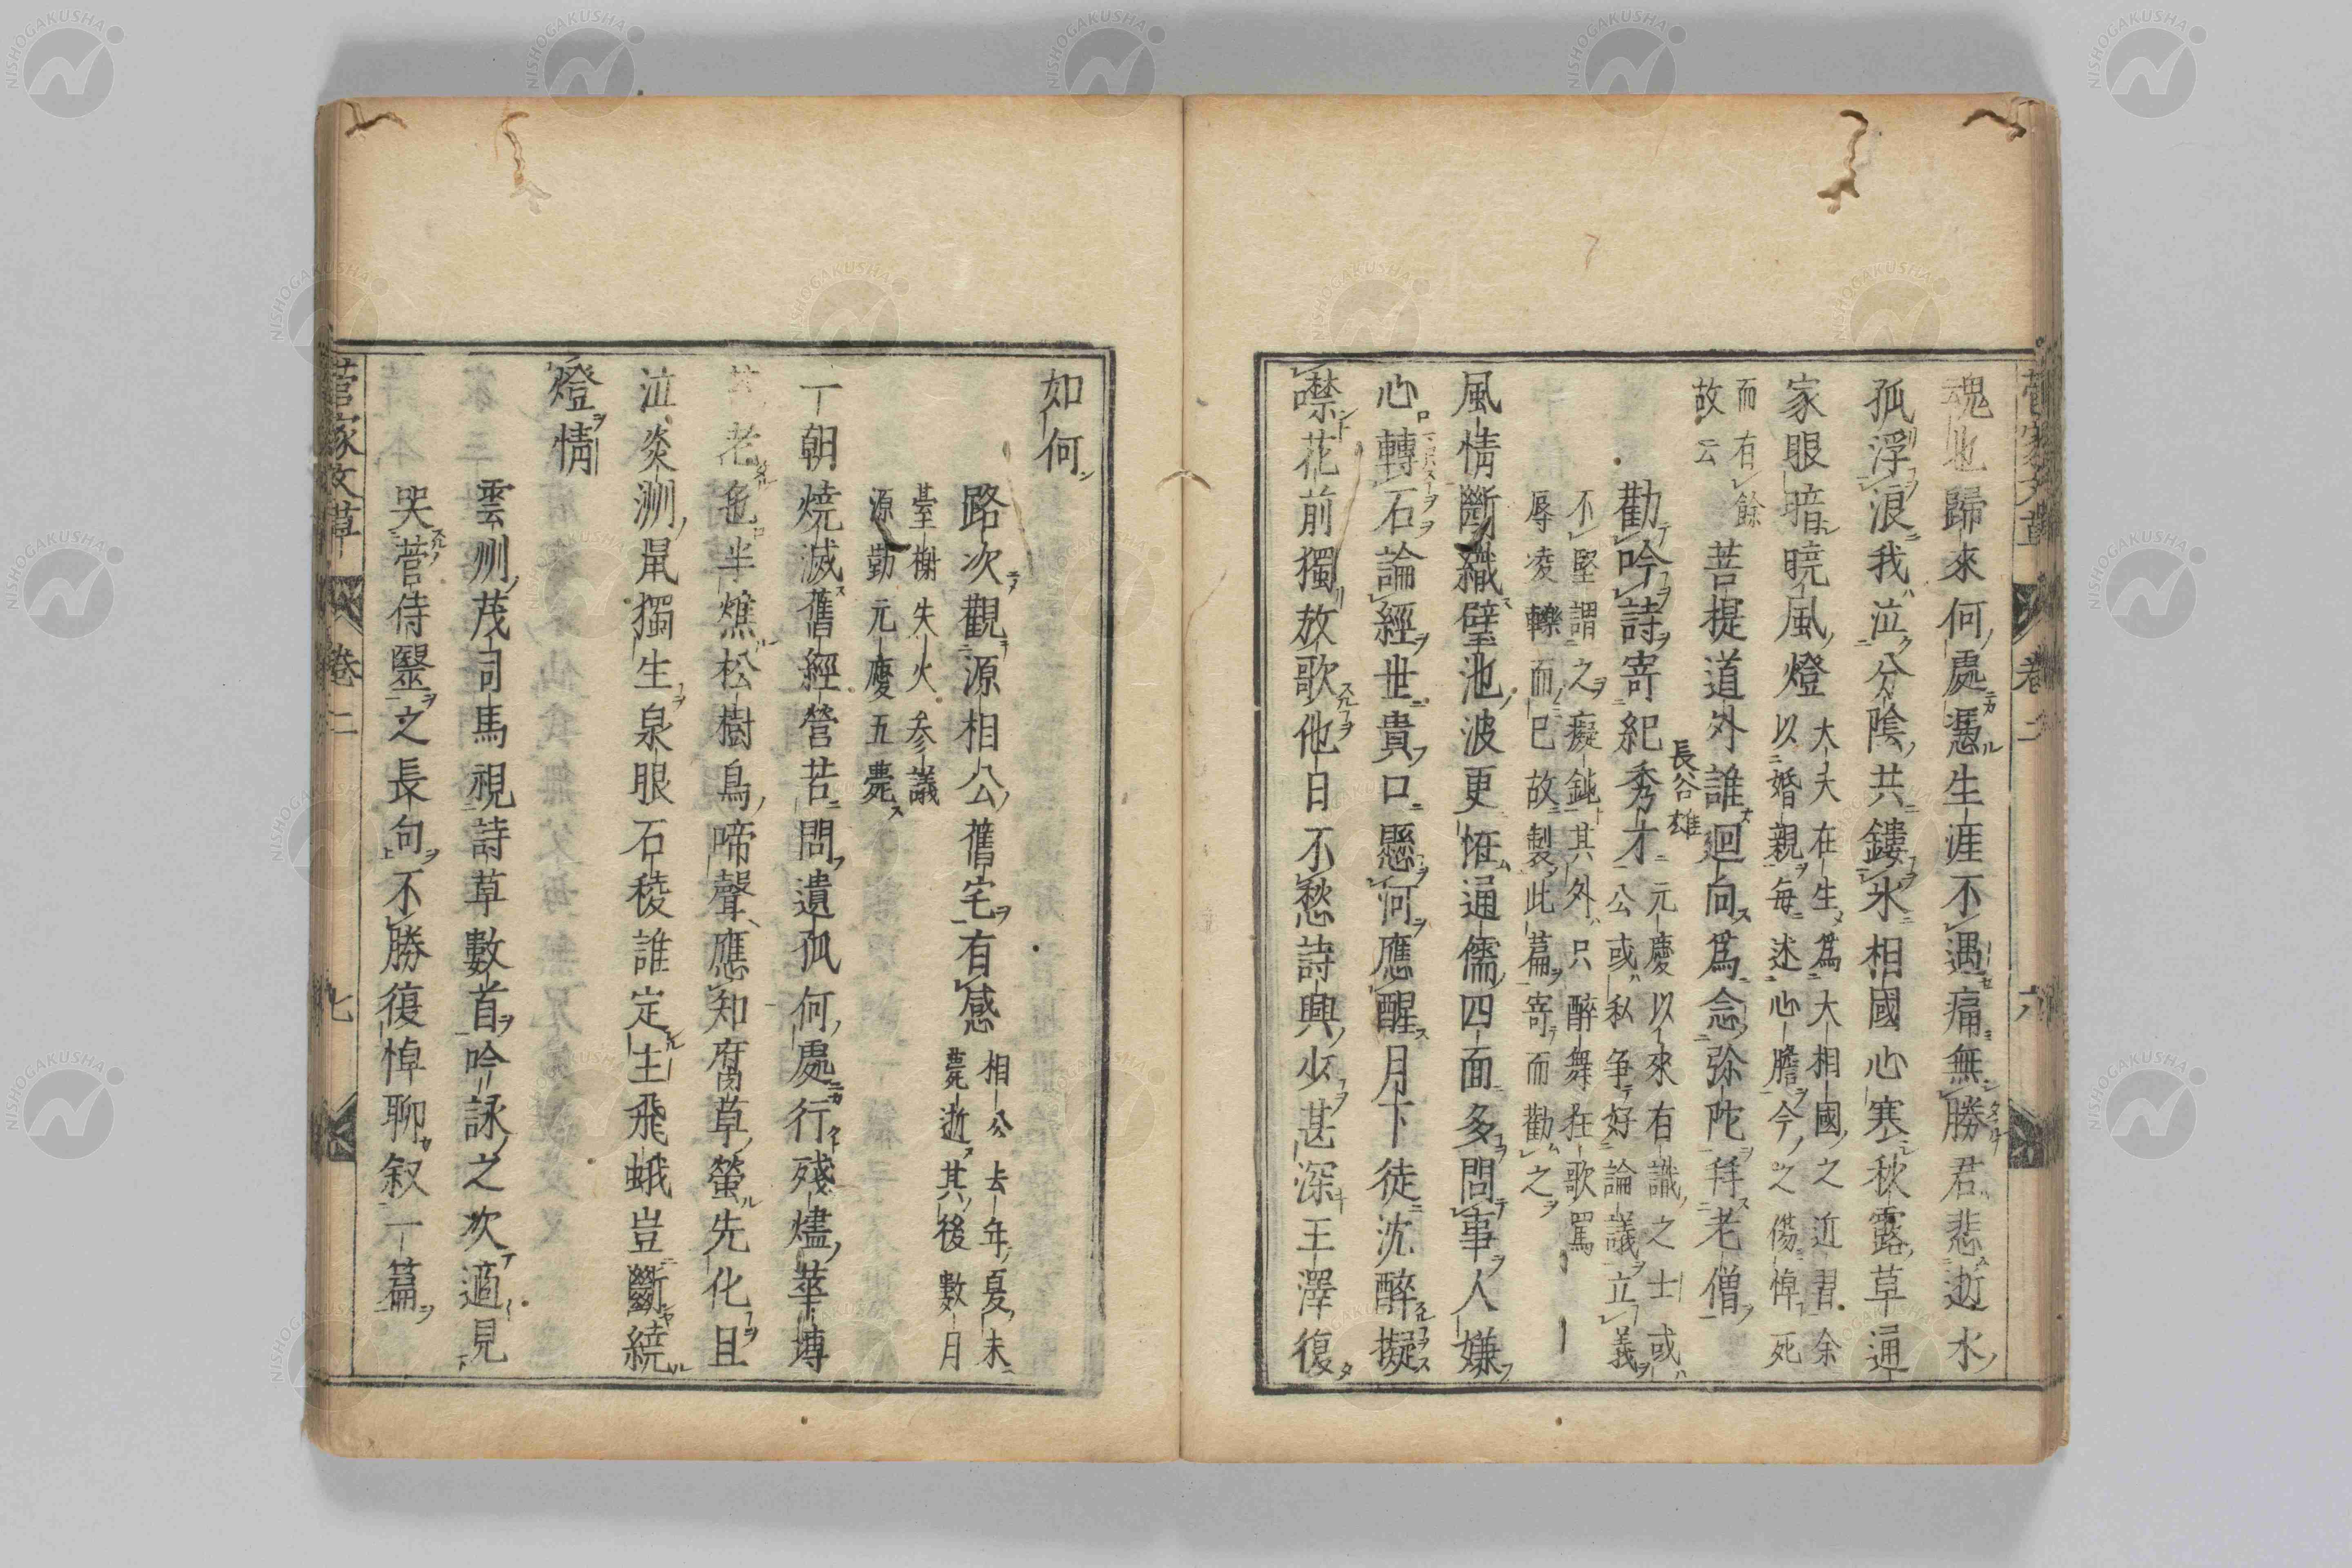 菅家文草 卷二 六
魂也歸來何處憑生涯不遇痛無勝君悲逝水
孤浮浪我泣分陰共鏤氷相國心寒秋露草通
家眼暗曉風燈大夫在生爲大相國之近習余
以婚親每述心膽今之傷悼死
而有餘
故云
菩提道外誰迴向爲念弥陀拜老僧
勸吟詩寄紀秀才元慶以來有識之士或
公或私爭好論議立義
長谷雄
不堅謂之癡鈍其外只醉舞狂歌罵
辱凌轢而已故製此篇寄而勸之
風情斷織璧池波更恠通儒四面多問事人嫌
心轉石論經世貴口懸河應醒月下徒沈醉擬
噤花前獨放歌他日不愁詩興少甚深王澤復
如何
路次觀源相公舊宅有感相公去年夏末
薨逝其後數月
臺榭失火參議
源勤元慶五薨
一朝燒滅舊經營苦問遺孤何處行殘燼華塼
苔老色半燋松樹鳥啼聲應知腐草螢先化且
泣炎洲鼠獨生泉眼石稜誰定主飛蛾豈斷繞
燈情
雲州茂司馬視詩草數首吟詠之次適見
哭菅侍醫之長句不勝復悼聊叙一篇
菅家文草 卷二 七
NISHOGAKUSHA